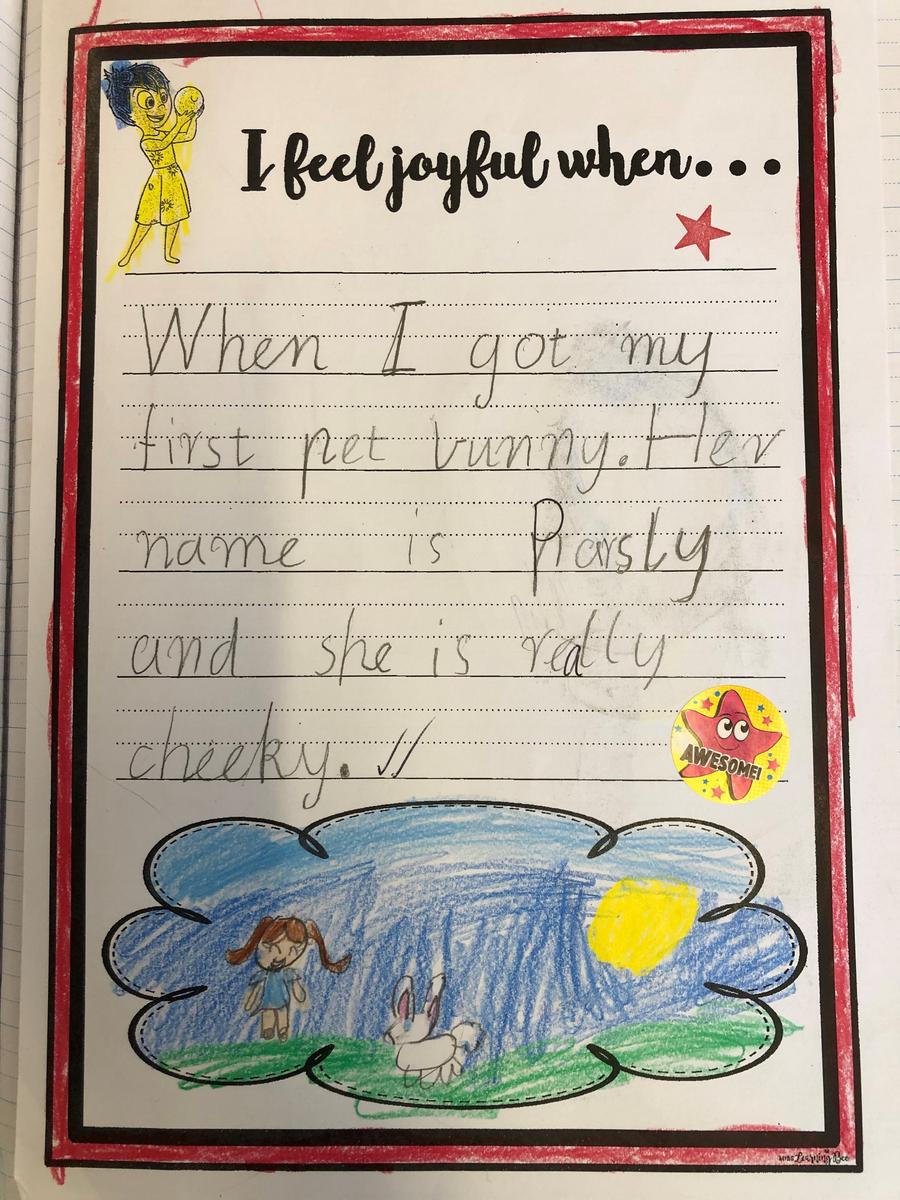 I feel joyful when...
When I got my
first pet bunny. Her
name is Parsly
and she is really
cheeky.
AWESOME!
Miss Learning Bee